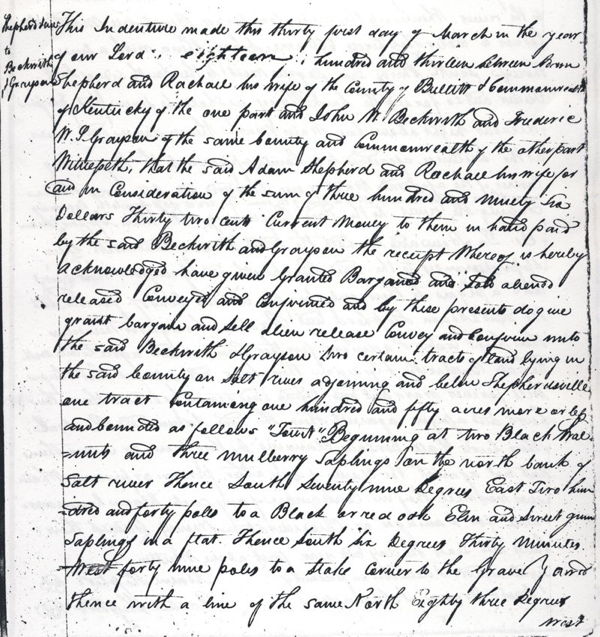 Shepherd &
to
Beckwith
& Grayson
This Indenture made this thirty first day of March in the year
of our Lord eighteen hundred and thirteen between Adam
Shepherd and Rachael his wife of the County of Bullitt & Commonwealth
of Kentucky of the one part and John W. Beckwith and Frederic
W. S. Grayson of the same County and Commonwealth of the other part
Witnesseth, that the said Adam Shepherd and Rachael his wife for
and in Consideration of the sum of three hundred and ninety Six
Dollars Thirty two cents Current Money to them in hand paid
by the said Beckwith and Grayson the receipt Whereof is hereby
acknowledged have given Granted Bargained and Sold aliened
released Conveyed and Confirmed and by these presents do give
grant bargain and Sell alien release Convey and Confirm unto
the said Beckwith & Grayson two certain tracts of Land lying in
the said County on Salt river adjoining and below Shepherdsville
one tract Containing one hundred and fifty acres more or less
and bounded as follows "Towit" Beginning at two Black Wal-
=nuts and three mulberry Saplings on the north bank of
Salt river Thence South Seventy nine Degrees East Two hun
=dred and forty poles to a Black or red oak Elm and Sweet gum
Saplings in a flat. Thence South Six Degrees Thirty Minutes
West forty nine poles to a Stake corner to the Grave Yard
Thence with a line of the same North Eighty three Degrees
West